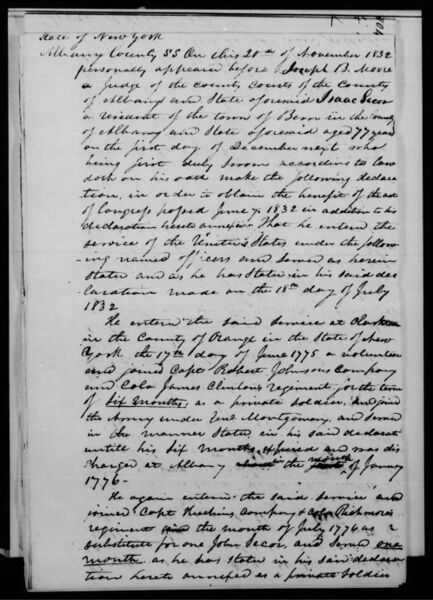 State of New York
Albany County SS On this 20th of November 1832
personally appeared before Joseph B. More
a Judge of the County Courts of the County
of Albany and State aforesaid Isaac Secor
a resident of the town of Bern in the County
of Albany and State aforesaid aged 77 years
on the first day of December next who
being first duly sworn according to law
doth on his oath make the following declara
tion, in order to obtain the benefit of the act
of Congress passed June 7 1832 in addition to his
declaration hereto annexed That he entered the
service of the United States under the follow
ing named officers and served as herein
stated and as he has stated in his said dec
laration made on the 18th day of July
1832
He entered the said service at
in the County of Orange in the State of New
York the 17th day of June 1775 a volunteer
and joined Capt Robert Johnsons Company
and Colo James Clintons regiment for the term
of six months, as a private soldier, and joined
the Army under Genl Montgomery, and served
in the manner stated in his said declarati
until his six months expired and was dis
charged at Albany in the month of January
1776 -
He again entered the said service and
joined Capt Company &
regiment the month of July 1776 as a
substitute for one John Secor, and served one
month, as he has stated in his said declara
tion hereto annexed as a private soldier